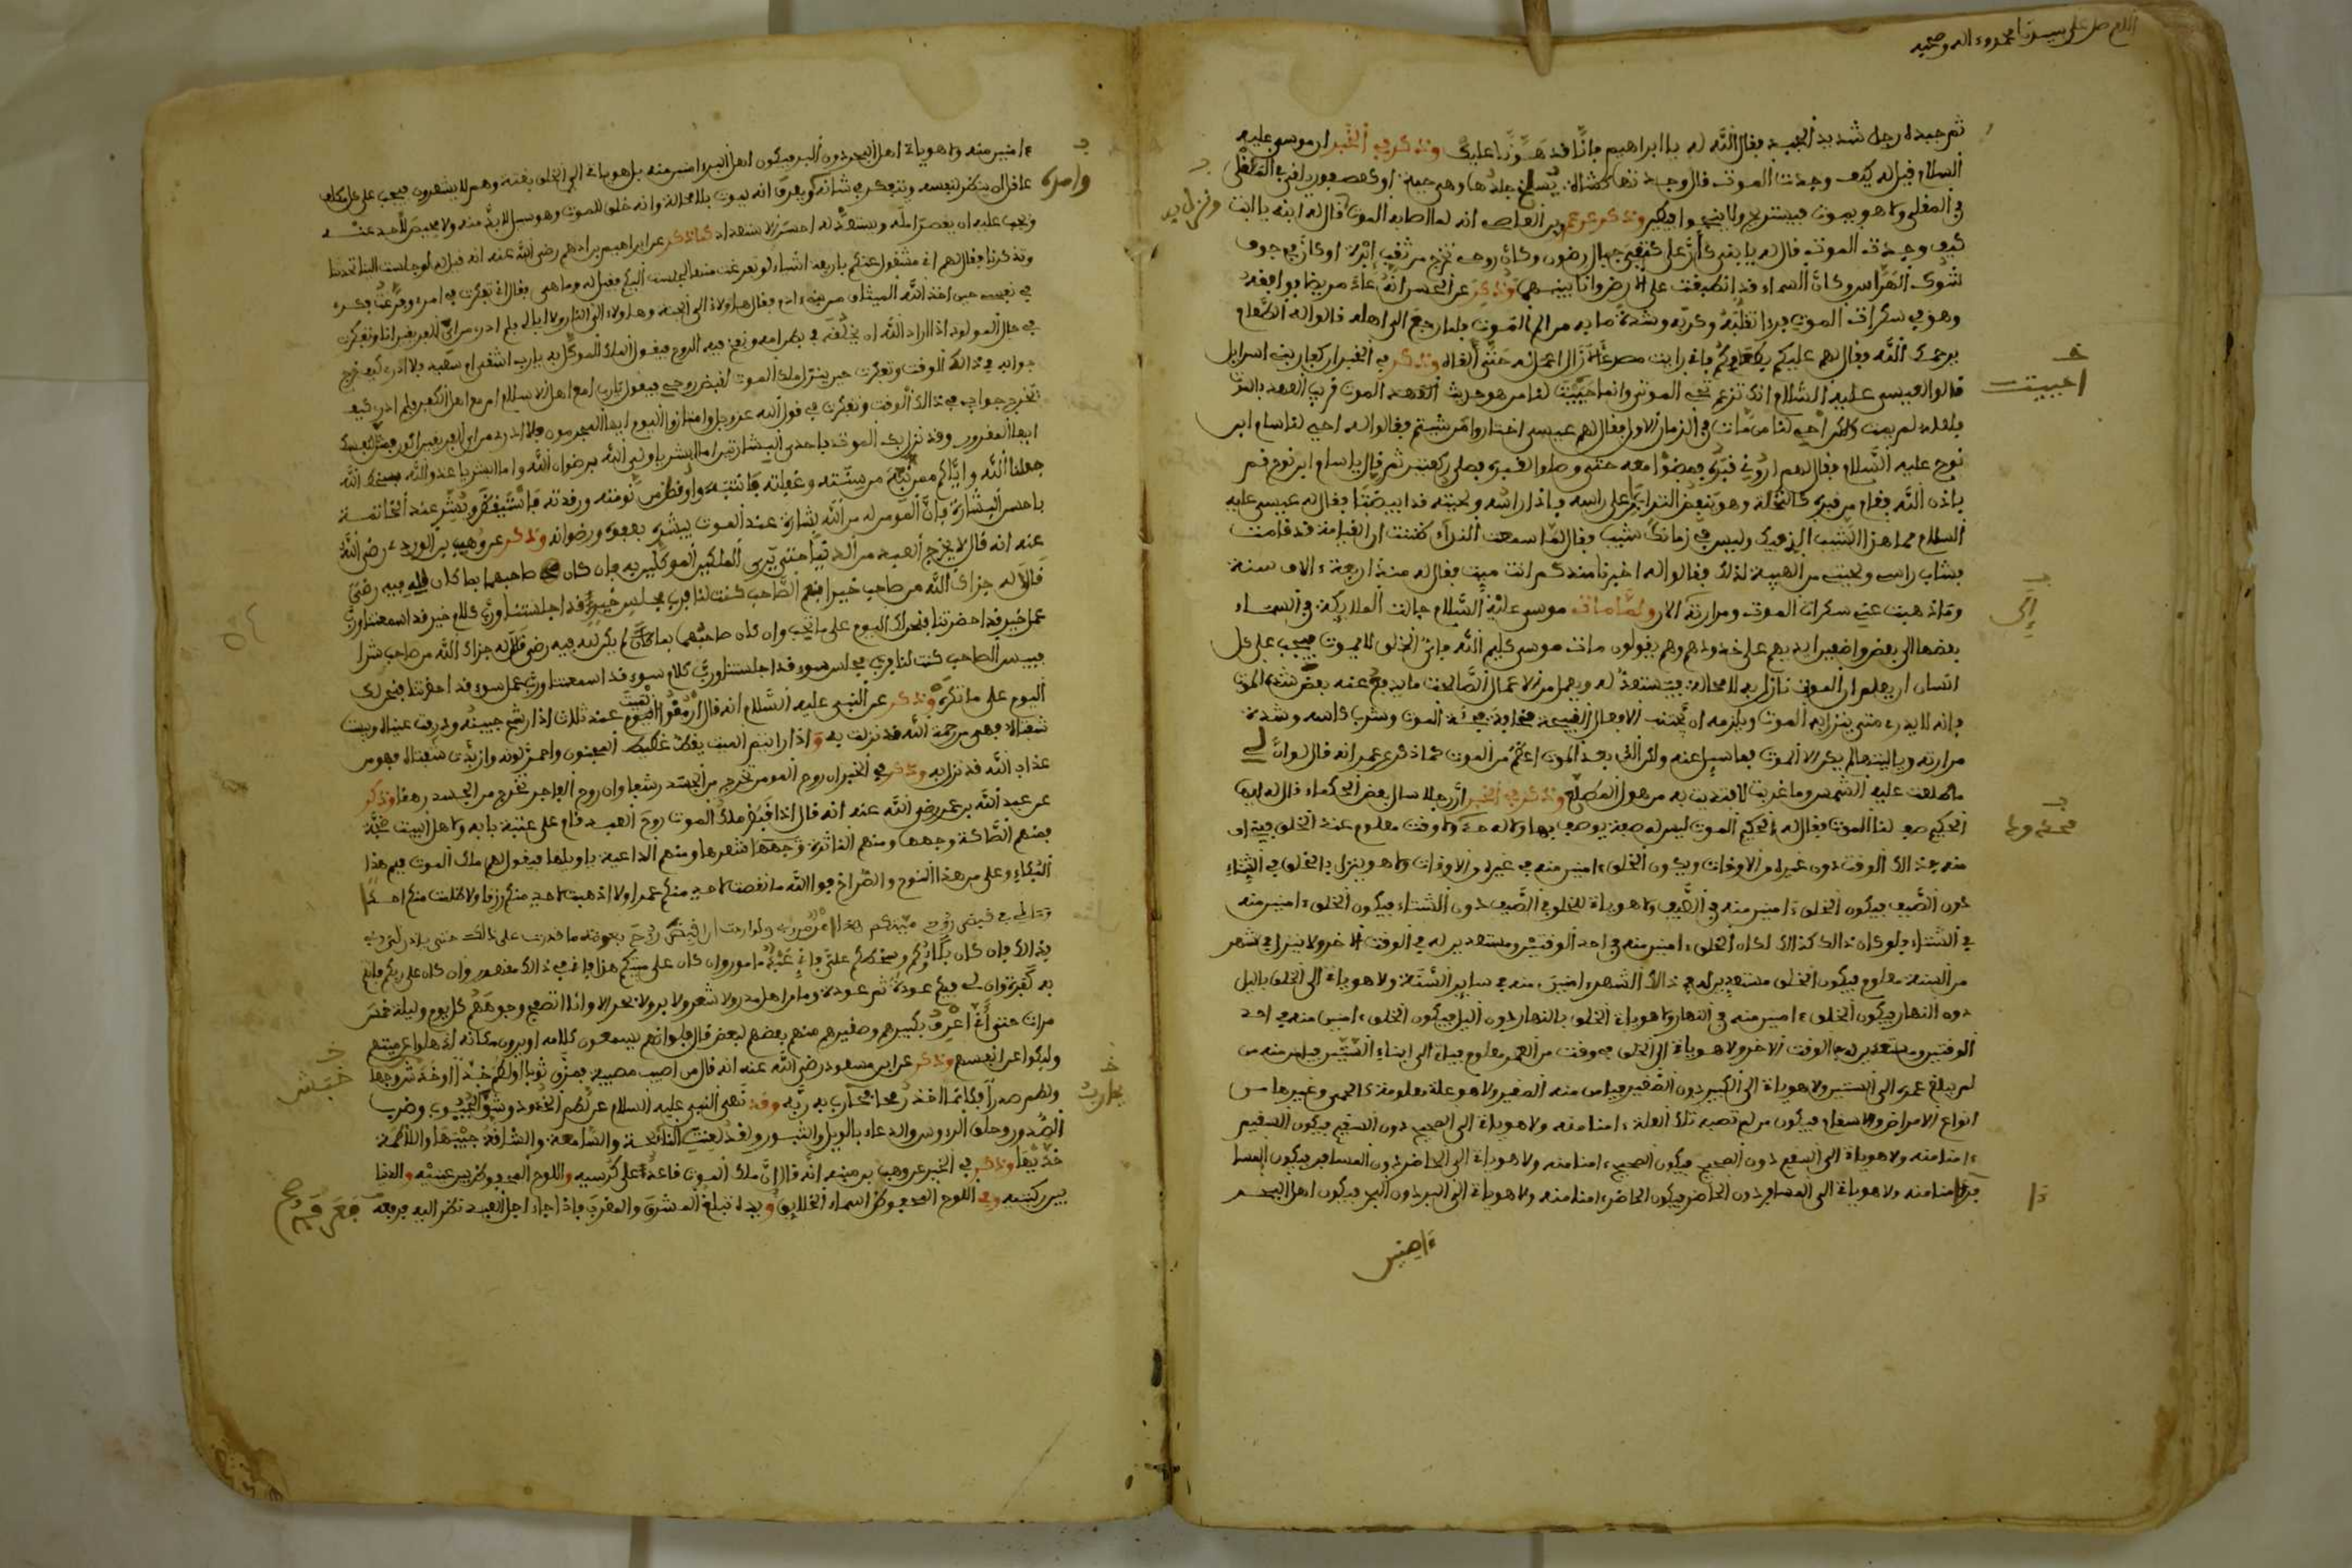 اللهم صل على سيدنا محمد وءاله وصحبه
ثم جبده رجل شديد الجبد فقال الله له يا ابراهيم فانا قد هونا عليك وذكر في الخبر ان موسى عليه
السلام قيل له كيف وجدت الموت قال وجدتها كشاة يسلخ جلدها وهي حية او كعصفور القي في المقلى
في المقلى ولا هو يموت فيستريح ولا ينجوا فيطير وذكر عن عمرو بن العاص انه لما اصابه الموت قال له ابنه يا ابت
كيف وجدت الموت قال له يا بني كأن على كتفي جبال رضوى وكأن روحي تخرج من ثقب ابرة او كأن في جوفي
شوك الهراس وكأن السماء قد انطبقت على الارض وانا بينهما وذكر عن الحسن انه عاد مريضا فوافقه
وهو في سكرات الموت فرءا تقلبه وكربه وشدة ما به من الم الموت فلما رجع الى اهله قالوا له الطعام
يرحمك الله فقال لهم عليكم بطعامكم فاني رايت مصرعا لا ازال اعمل له حتى القاه وذكر في الخبر ان كفار بني اسرائل
قالوا لعيسى عليه السلام انك تزعم تحيى الموتى وانما حييت لنا من هو حديث العهد بالموت قريب العهد بالدنيا
فلعله لم يمت ولكن احي لنا من مات في الزمان الاول فقال لهم عيسى اختاروا من شيتم فقالوا له احي لنا سام ابن
نوح عليه السلام فقال لهم اروني قبره فمضوا معه حتى وصلوا القبر فصلى ركعتين ثم قال يا سام ابن نوح قم
باذن الله فقام من قبره كالنخلة وهو ينفض التراب على راسه فاذا راسه ولحيته قد ابيضتا فقال له عيسى عليه
السلام مما هذا الشيب الذي بك وليس في زمانك شيب فقال لما سمعت النداء ظننت ان القيامة قد قامت
فشاب راسي ولحيتي من الهيبة لذلك فقالوا له اخبرنا منذ كم انت ميت فقال له منذ اربعة ءالاف سنة
وما ذهبت عني سكرات الموت ومرارته الان ولما مات موسى عليه السلام جالت الملايكة في السماء
بعضها الى بعض واضعين ايديهم على خدودهم وهم يقولون مات موسى كليم الله فاي الخلق لا يموت فيجب على كل
انسان ان يعلم ان الموت نازل به لا محالة فيستعد له ويعمل من الاعمال الصالحات ما يدفع عنه بعض شدة الموت
فانه لا يدرى متى ينزل به الموت ويلزمه ان يجتنب الافعال القبيحة مخافة فجأة الموت وشرب كاسه وشدة
مرارته ويا ليتها لم يكن الا الموت فما سبيل عنه ولكن الذي بعد الموت اعظم من الموت كما ذكر عن عمر انه قال لو ان لي
ما طلعت عليه الشمس وما غربت لافتديت به من هول المطلع وذكر في الخبر ان رجلا سال بعض الحكماء قال له ايها
الحكيم صف لنا الموت فقال له الحكيم الموت ليس له صفة يوصف بها ولا له حد ولا وقت معلوم عند الخلق فيخاف
منه في ذالك الوقت دون غيره من الاوقات ويكون الخلق ءامنين منه في غيره من الاوقات ولا هو ينزل بالخلق في الشتاء
دون الصيف فيكون الخلق ءامنين منه في الصيف ولا هو ياتي للخلق في الصيف دون الشتاء فيكون الخلق ءامنين منه
في الشتاء فلو كان ذالك كذالك لكان الخلق ءامنين منه في احد الوقتين ومستعدين له في الوقت الاخر ولا ينزل في شهر
من السنة معلوم فيكون الخلق مستعدين له في ذالك الشهر ءامنين منه في ساير السنة ولا هو ياتي الى الخلق باليل
دون النهار فيكون الخلق ءامنين منه في النهار ولا هو ياتي الخلق بالنهار دون اليل فيكون الخلق ءامنين منه في احد
الوقتين ومستعدين له في الوقت الاخر ولا هو ياتي الى الخلق في وقت من العمر معلوم فياتي الى ابناء الستين فيامن منه من
لم يبلغ عمره الى الستين ولا هو ياتي الى الكبير دون الصغير فيامن منه الصغير ولا هو علة معلومة كالحمى وغيرها من
انواع الامراض والاسقام فيكون من لم تصبه تلك العلة ءامنا منه ولا هو ياتي الى الصحيح دون السقيم فيكون السقيم
ءامنا منه ولا هو ياتي الى السقيم دون الصحيح فيكون الصحيح ءامنا منه ولا هو ياتي الى الحاضر دون المسافر فيكون المسا
فر ءامنا منه ولا هو ياتي الى المسافر دون الحاضر فيكون الحاضر ءامنا منه ولا هو ياتي الى البر دون البحر فيكون اهل البحر
ءامنين
احييت
ءامنين منه ولا هو ياتي اهل البحر دون البر فيكون اهل البر ءامنين منه بل هو ياتي الى الخلق بغتة وهم لا يشعرون فيجب على كل مكلف
عاقل ان ينظر لنفسه ويتفكر في شانه ويعرف انه يموت لا محالة وانه خلق للموت وهو سبيل لا بد منه ولا محيص لاحد عنه
ويجب عليه ان يقصر امله ويستعد له احسن الاستعداد كما ذكر عن ابراهيم بن ادهم رضي الله عنه انه قيل له لو جلست الينا تحدثنا
وتذكرنا فقال لهم اني مشغول عنكم باربعة اشياء لو تفرغت منها لجلست اليكم فقيل له وما هي فقال اني تفكرت في امري وفرغت فكري
في نفسي حين اخذ الله الميثاق من بني ءادم فقال هاولاء الى الجنة وهاولاء الى النار ولا ابالي فلم ادر من اي الفريقين انا وتفكرت
في حال المولود اذا اراد الله ان يخلقه في بطن امه ونفخ فيه الروح فيقول الملك الموكل به يا رب اشقي ام سعيد فلا ادري كيف خرج
جوابي في ذالك الوقت وتفكرت حين ينزل ملك الموت لقبض روحي فيقول يا رب امع اهل الاسلام ام مع اهل الكفر فلم ادر كيف
يخرج جوابي في ذالك الوقت وتفكرت في قول الله عز وجل وامتازوا اليوم ايها المجرمون فلا ادري من اي الفريقين اكون فمثل لنفسك
ايها المغرور وقد نزل بك الموت باحدى البشارتين اما ابشر يا ولي الله برضوان الله واما ابشر يا عدو الله بسخط الله
جعلنا الله واياكم ممن نبه من سنته وغفلته فانتبه واوقظ من نومته ورقدته فاستيقظ وبشر عند الخاتمة
باحسن البشارة فان المومن له من الله بشارة عند الموت يبشره بعفوه ورضوانه وذكر عن وهيب بن الورد رضي الله
عنه انه قال لا يخرج العبد من الدنيا حتى يرى الملكين الموكلين به فان كان صاحبهما بما كان لله فيه رضى
قالا له جزاك الله من صاحب خيرا فنعم الصاحب كنت لنا فرب مجلس خير قد اجلستنا ورب كلام خير قد اسمعتنا ورب
عمل خير قد احضرتنا فنحن لك اليوم على ما تحب وان كان صاحبهما بما كان لم يكن لله فيه رضى قالا له جزاك الله من صاحب شرا
فبيس الصاحب كنت لنا فرب مجلس سوء قد اجلستنا ورب كلام سوء قد اسمعتنا ورب عمل سوء قد احضرتنا فنحن لك
اليوم على ما تكره وذكر عن النبي عليه السلام انه قال ارمقوا الميت عند ثلاث اذا رشح جبينه وذرفت عيناه ويبست
شفتاه فهي من رحمة الله قد نزلت به واذا رايتم الميت يغط غطيط المخنوق واحمر لونه وازبدت شفتاه فهو من
عذاب الله قد نزل به وذكر في الخبر ان روح المومن تخرج من الجسد رشحا وان روح الفاجر تخرج من الجسد زهقا وذكر
عن عبد الله بن عمر رضي الله عنه انه قال اذا قبض ملك الموت روح العبد قام على عتبة بابه ولاهل البيت ضجة
فمنهم الصاكة وجهها ومنهم الناشرة شعرها ومنهم الداعية بويلها فيقول لهم ملك الموت فيم هذا
البكاء وعلى من هذا النوح والصراخ فوالله ما نقصت لاحد منكم عمرا ولا اذهبت لاحد منكم رزقا ولا ظلمت منكم احدا
بذالك فان كان بكاؤكم وسخطكم علي فاني عبد مامور وان كان على ميتكم هذا فانه في ذالك مقهور وان كان على ربكم فانتم
به كفرة وان لي فيكم عودة ثم عودة وما من اهل مدر ولا شعر ولا بر ولا بحر الا وانا اتصفح وجوههم كل يوم وليلة خمس
مرات حتى اني اعرف بكبيرهم وصغيرهم منهم بعضهم لبعض قال فلو انهم يسمعون كلامه او يرون مكانه لذهلوا عن ميتهم
ولبكوا على انفسهم وذكر عن ابن مسعود رضي الله عنه انه قال من اصيب بمصيبة فمزق ثوبا او لطم خدا او خدش وجها
ولطم صدرا فكانما اخذ رمحا يحارب به ربه وقد نهى النبي عليه السلام عن لطم الخدود وشق الجيوب وضرب
الصدور وحلق الرءوس والدعاء بالويل والثبور ولقد لعنت النائحة والسامعة والشاقة جيبها واللاطمة
خديها وذكر في الخبر عن وهب بن منبه انه قال ان ملك الموت قاعد على كرسيه واللوح المحفوظ بين عينيه والدنيا
بين ركبتيه وفي اللوح المحفوظ اسماء الخلايق ويده تبلغ المشرق والمغرب فاذا جاء اجل العبد نظر اليه فرفعه